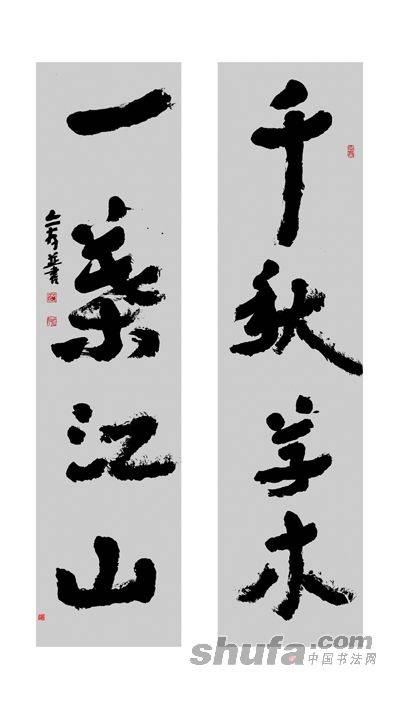 千秋草木
一葉江山
書
shufa.com
中国书法网